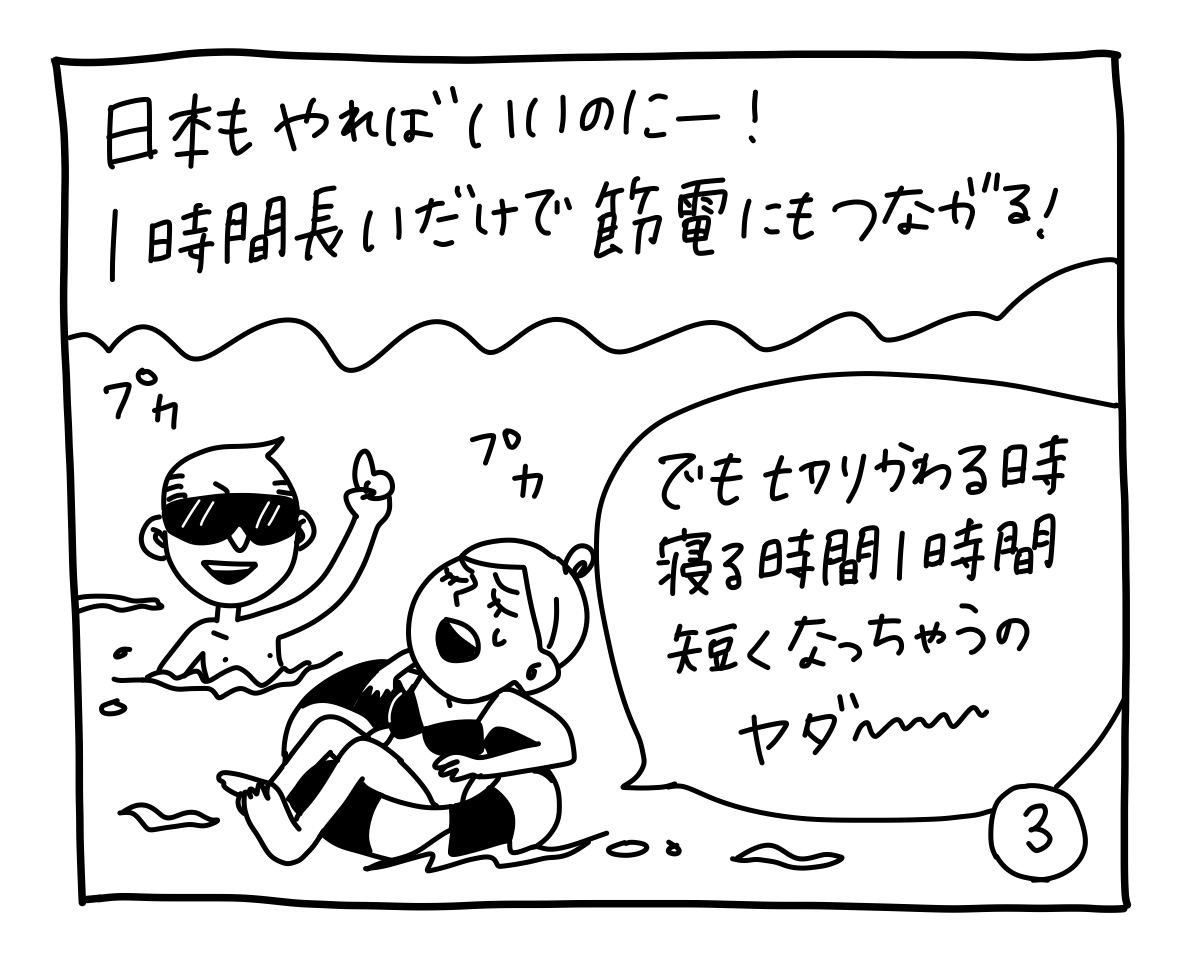 日本もやればいいのにー！
1時間長いだけで節電にもつながる！
プカ
プカ
でも切りかわる時
寝る時間1時間
短くなっちゃうの
ヤダ〜〜〜
3